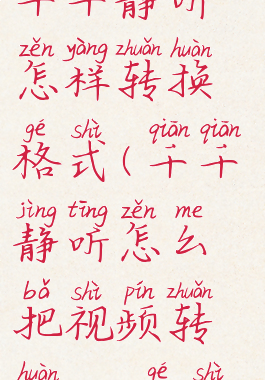 千千静听
zěn yàng zhuǎn huàn
怎样转换
gé shì qiān qiān
格式(千千
jìng tīng zěn me
静听怎么
bǎ shì pín zhuǎn
把视频转
huàn gé shì